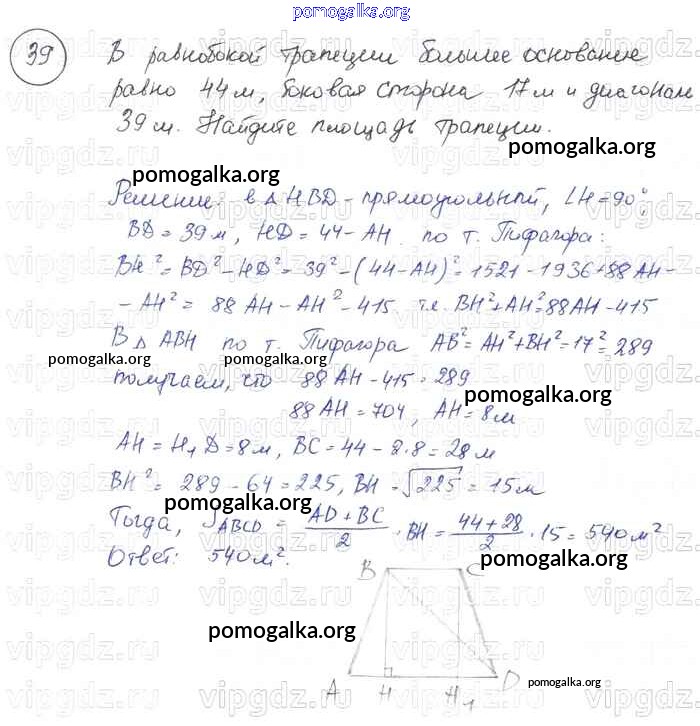 pomogalka.org
39 В равнобокой трапеции большее основание
равно 44 м, боковая сторона 17 м и диагональ
39 м. Найдите площадь трапеции.
pomogalka.org
pomogalka.org
Решение: в △ HBD - прямоугольный, ∠H = 90°,
BD = 39 м, HD = 44 - AH. по т. Пифагора:
BH² = BD² - HD² = 39² - (44 - AH)² = 1521 - 1936 + 88 AH -
- AH² = 88 AH - AH² - 415 т.е. BH² + AH² = 88AH - 415
В △ ABH по т. Пифагора AB² = AH² + BH² = 17² = 289
pomogalka.org pomogalka.org
получаем, что 88 AH - 415 = 289
pomogalka.org
88 AH = 704, AH = 8 м
AH = H₁D = 8 м, BC = 44 - 2·8 = 28 м
BH² = 289 - 64 = 225, BH = √225 = 15 м
pomogalka.org
Тогда, S ABCD = AD + BC / 2 · BH = 44 + 28 / 2 · 15 = 540 м²
Ответ: 540 м².
pomogalka.org
B C
pomogalka.org
A H H₁ D
pomogalka.org